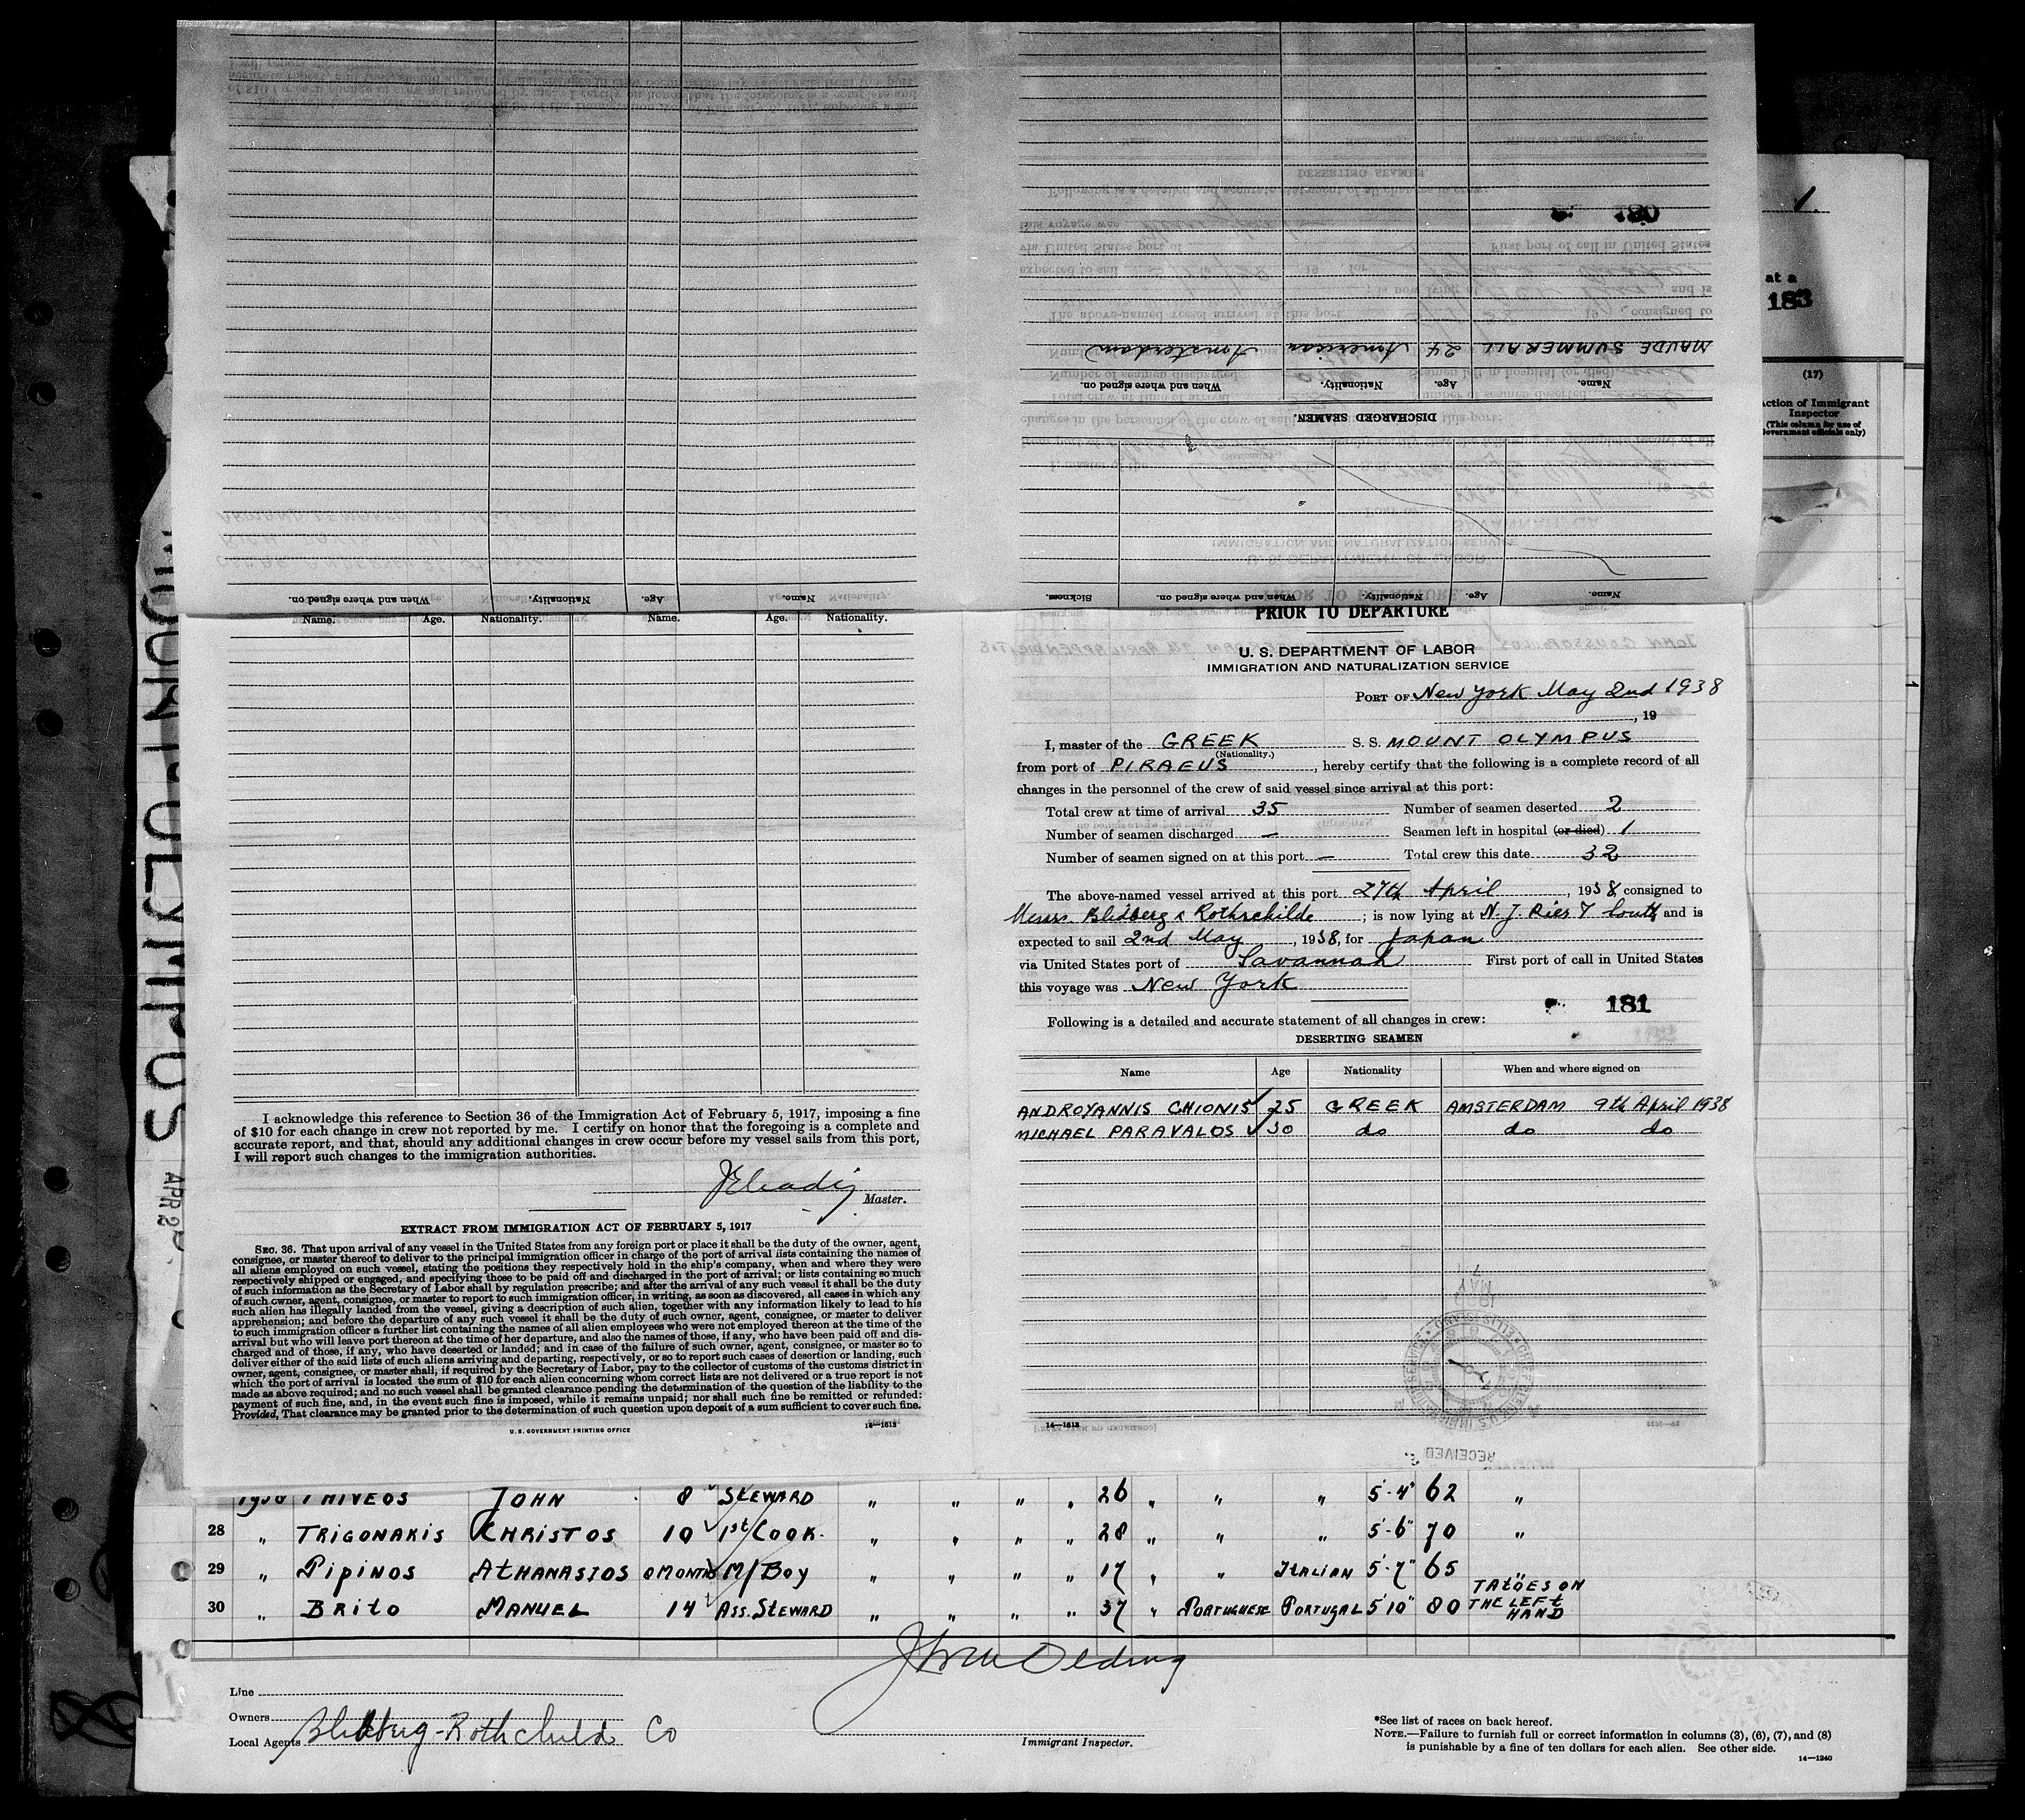 180
MAUDE SUMMERALL 24 American Amsterdam
Name. Age. Nationality. When and where signed on.
DISCHARGED SEAMEN.
Name. Age. Nationality. When and where signed on. Sickness.
Name. Age. Nationality. When and where signed on.
1.
at a
183
(17)
Action of Immigrant
Inspector
(This column for use of
Government officials only)
MOUNT OLYMPUS
Name. Age. Nationality. Name. Age. Nationality.
I acknowledge this reference to Section 36 of the Immigration Act of February 5, 1917, imposing a fine
of $10 for each change in crew not reported by me. I certify on honor that the foregoing is a complete and
accurate report, and that, should any additional changes in crew occur before my vessel sails from this port,
I will report such changes to the immigration authorities.
Master.
EXTRACT FROM IMMIGRATION ACT OF FEBRUARY 5, 1917
SEC. 36. That upon arrival of any vessel in the United States from any foreign port or place it shall be the duty of the owner, agent,
consignee, or master thereof to deliver to the principal immigration officer in charge of the port of arrival lists containing the names of
all aliens employed on such vessel, stating the positions they respectively hold in the ship's company, when and where they were
respectively shipped or engaged, and specifying those to be paid off and discharged in the port of arrival; or lists containing so much
of such information as the Secretary of Labor shall by regulation prescribe; and after the arrival of any such vessel it shall be the duty
of such owner, agent, consignee, or master to report to such immigration officer, in writing, as soon as discovered, all cases in which any
such alien has illegally landed from the vessel, giving a description of such alien, together with any information likely to lead to his
apprehension; and before the departure of any such vessel it shall be the duty of such owner, agent, consignee, or master to deliver
to such immigration officer a further list containing the names of all alien employees who were not employed thereon at the time of the
arrival but who will leave port thereon at the time of her departure, and also the names of those, if any, who have been paid off and dis-
charged and of those, if any, who have deserted or landed; and in case of the failure of such owner, agent, consignee, or master so to
deliver either of the said lists of such aliens arriving and departing, respectively, or so to report such cases of desertion or landing, such
owner, agent, consignee, or master shall, if required by the Secretary of Labor, pay to the collector of customs of the customs district in
which the port of arrival is located the sum of $10 for each alien concerning whom correct lists are not delivered or a true report is not
made as above required; and no such vessel shall be granted clearance pending the determination of the question of the liability to the
payment of such fine, and, in the event such fine is imposed, while it remains unpaid; nor shall such fine be remitted or refunded:
Provided, That clearance may be granted prior to the determination of such question upon deposit of a sum sufficient to cover such fine.
U. S. GOVERNMENT PRINTING OFFICE
14—1613
PRIOR TO DEPARTURE
U. S. DEPARTMENT OF LABOR
IMMIGRATION AND NATURALIZATION SERVICE
PORT OF New York May 2nd 1938
, 19
I, master of the GREEK S. S. MOUNT OLYMPUS
(Nationality.)
from port of PIRAEUS, hereby certify that the following is a complete record of all
changes in the personnel of the crew of said vessel since arrival at this port:
Total crew at time of arrival 35 Number of seamen deserted 2
Number of seamen discharged — Seamen left in hospital (or died) 1
Number of seamen signed on at this port — Total crew this date 32
The above-named vessel arrived at this port 27th April, 1938, consigned to
Messrs. Blidberg & Rothschilde; is now lying at N. J. Pier 7 South and is
expected to sail 2nd May, 1938, for Japan
via United States port of Savannah First port of call in United States
this voyage was New York
181
Following is a detailed and accurate statement of all changes in crew:
DESERTING SEAMEN
Name Age Nationality When and where signed on
ANDROYANNIS CHIONIS 25 GREEK AMSTERDAM 9th April 1938
MICHAEL PARAVALOS 30 do do do
14—1613
RECEIVED
1938 PHIVEOS JOHN 8 STEWARD " " " " 26 " " " 5'-4" 62 "
28 " TRIGONAKIS CHRISTOS 10 1st COOK. " " " " 28 " " " 5'-6" 70 "
29 " PIPINOS ATHANASIOS 0 MONTHS M/BOY " " " " 17 " " ITALIAN 5'-7" 65 "
30 " BRITO MANUEL 14 ASS. STEWARD " " " " 37 " PORTUGUESE PORTUGAL 5'10" 80 TATOES ON THE LEFT HAND
Line
Owners
Local Agents Blidberg-Rothchild Co
Immigrant Inspector.
*See list of races on back hereof.
NOTE.—Failure to furnish full or correct information in columns (3), (6), (7), and (8)
is punishable by a fine of ten dollars for each alien. See other side.
14—1240